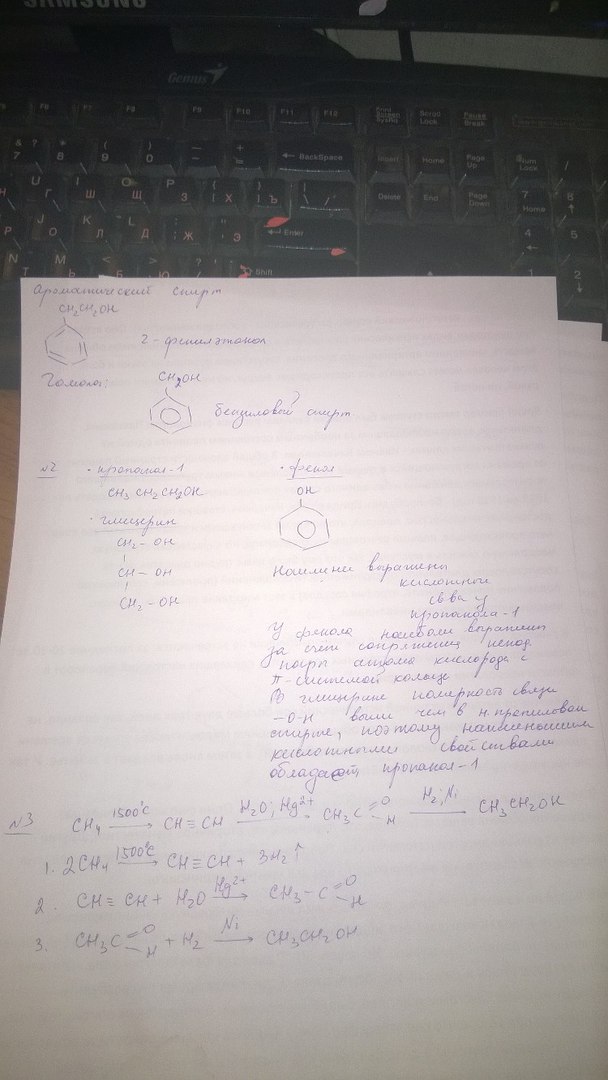 SAMSUNG
Genius
F6 F7 F8 F9 F10 F11 F12 Print Screen SysRq Scroll Lock Pause Break
& ? 7 * 8 ( 9 ) 0 — - + = ← BackSpace Insert Home Page Up Num Lock /
U Г I Ш O Щ P З { [ Х } ] Ъ Delete End Page Down 7 Home 8
J О K Л L Д : ; Ж " ' Э Enter 4 ← 5
N Т M Ь < Б > Ю ? Shift 1 2
Ароматический спирт
CH2CH2OH
2-фенилэтанол
Гомолог:
CH2OH
бензиловый спирт
№2 · пропанол-1 · фенол
CH3CH2CH2OH OH
· глицерин
CH2 - OH
CH - OH
CH2 - OH
Наименее выражены
кислотные
св-ва у
пропанола-1
У фенола наиболее выражены
за счет сопряжения непод
пары атома кислорода с
π-системой кольца
В глицерине полярность связи
-O-H выше чем в н.пропиловом
спирте, поэтому наименьшими
кислотными свойствами
обладает пропанол-1
№3 CH4 1500°C → CH≡CH H2O; Hg2+ → CH3C =O -H H2; Ni → CH3CH2OH
1. 2CH4 1500°C → CH≡CH + 3H2↑
2. CH≡CH + H2O Hg2+ → CH3-C =O -H
3. CH3C =O -H + H2 Ni → CH3CH2OH